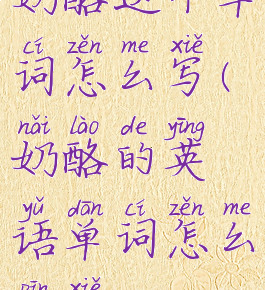 奶酪这个单
cí zěn me xiě
词怎么写(
nǎi lào de yīng
奶酪的英
yǔ dān cí zěn me
语单词怎么
pīn xiě